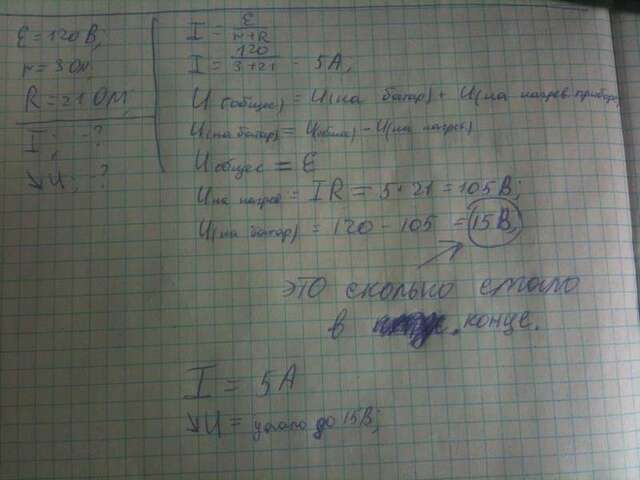 ε = 120 В;
r = 3 Ом;
R = 21 Ом;
I; - ?
↘U; - ?
I = ε / r+R
I = 120 / 3+21 = 5А;
U(общес) = U(на батар) + U(на нагрев прибор)
U(на батар) = U(общ) - U(на нагрев)
U общес = ε
U на нагрев = IR = 5 · 21 = 105В;
U(на батар) = 120 - 105 = 15В,
это сколько стало
в конце.
I = 5А
↘U = упало до 15В;